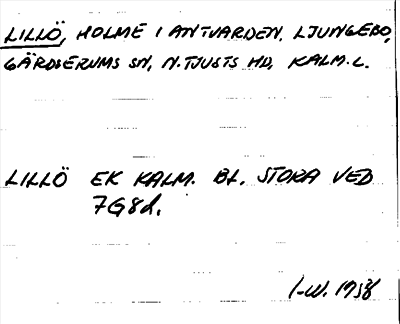 LILLÖ, HOLME I ANTVARDEN, LJUNGEBO,
GÄRDSERUMS SN, N. TJUSTS HD, KALM. L.
LILLÖ EK KALM. BL. STORA VED
7G8d.
I-W. 1958